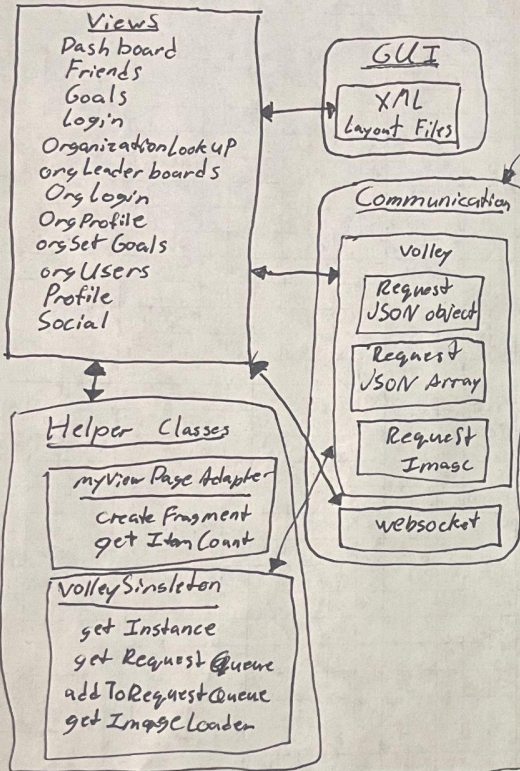 Views
Dashboard
Friends
Goals
Login
OrganizationLookup
orgLeaderboards
OrgLogin
OrgProfile
orgSetGoals
orgUsers
Profile
Social
GUI
XML
Layout Files
Communication
Volley
Request
JSON object
Request
JSON Array
Request
Image
websocket
Helper Classes
myView Page Adapter
create Fragment
get Item Count
VolleySingleton
get Instance
get Request Queue
addToRequestQueue
get ImageLoader